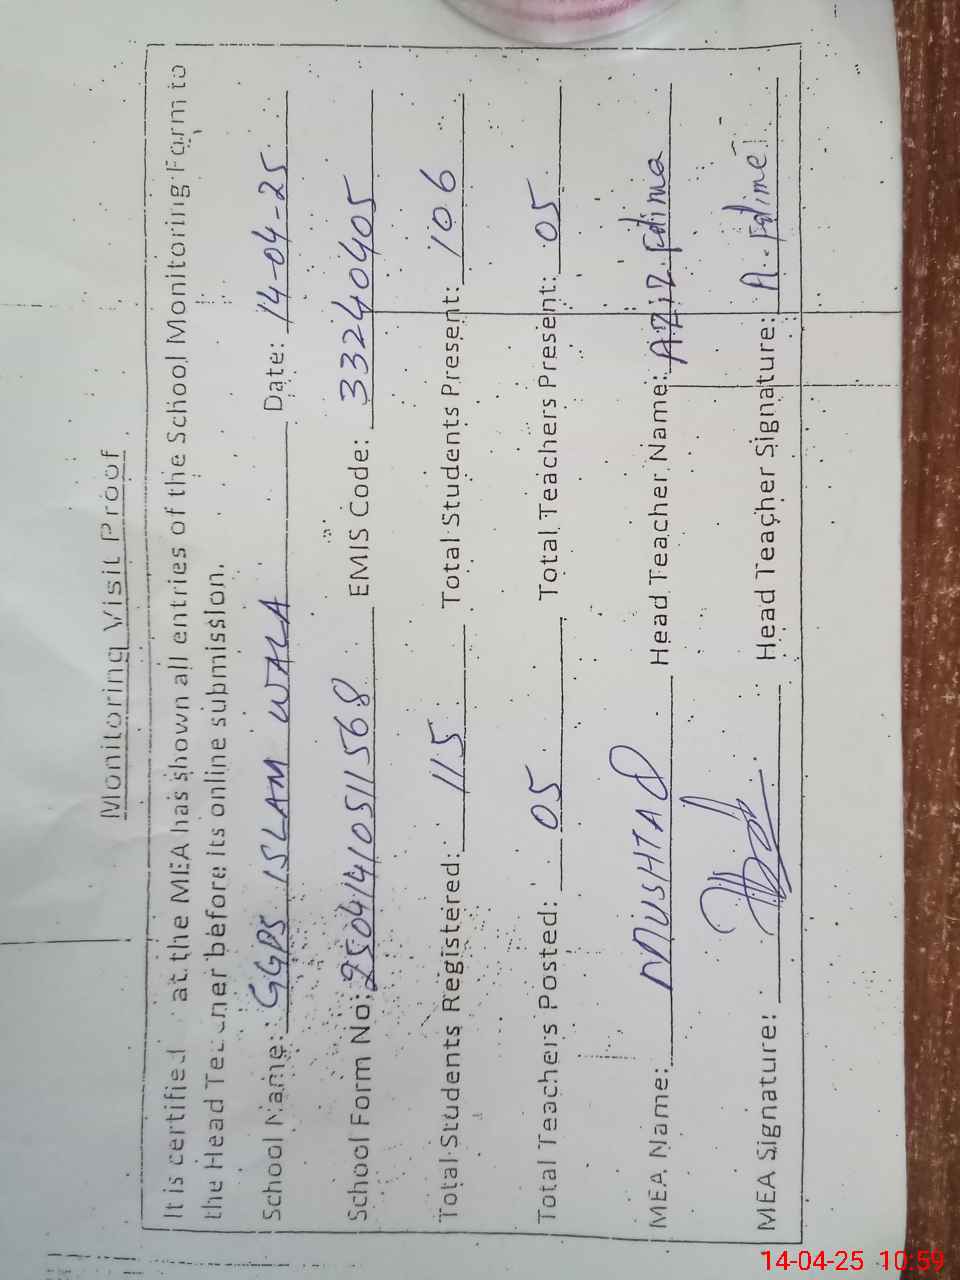 Monitoring Visit Proof
It is certified at the MEA has shown all entries of the School Monitoring Form to
the Head Teacher before its online submission.
School Name: GGPS ISLAM WALA Date: 14-04-25
School Form No: 25041410511568 EMIS Code: 33240405
Total Students Registered: 115 Total Students Present: 106
Total Teachers Posted: 05 Total Teachers Present: 05
MEA Name: MUSHTAQ Head Teacher Name: AZiZ Fatima
MEA Signature: Head Teacher Signature: A. Fatima
14-04-25 10:59